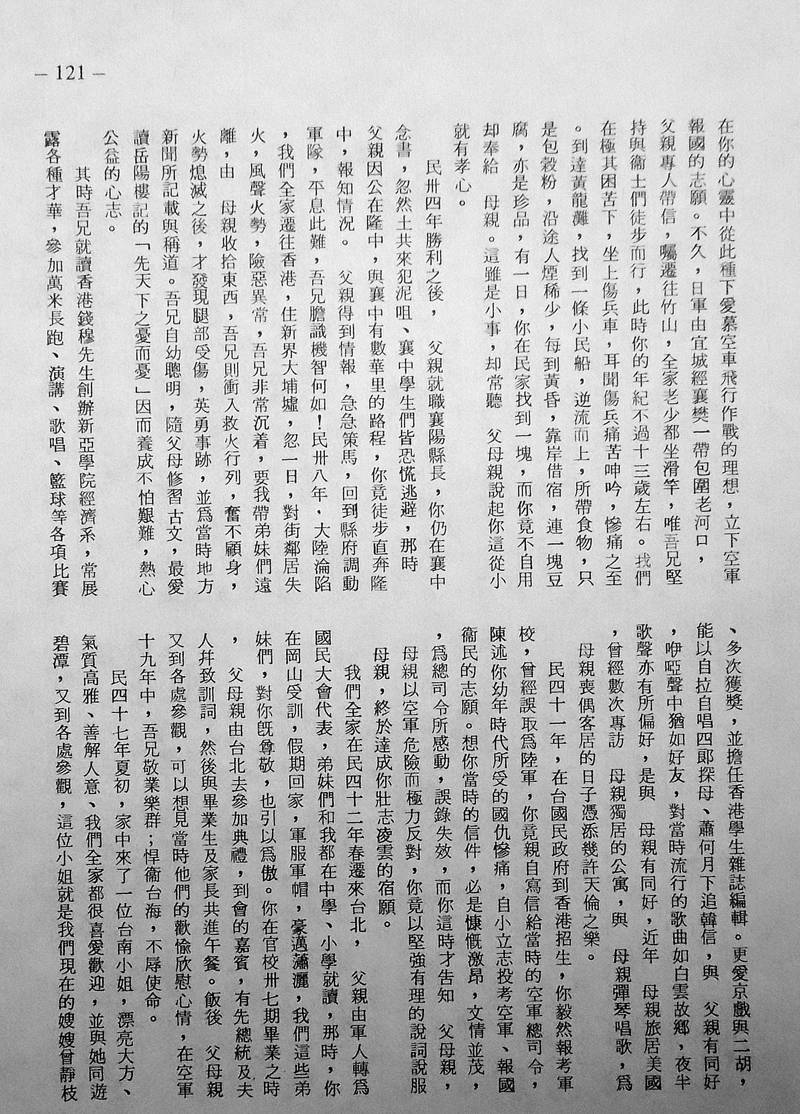 — 121 —
在你的心靈中從此種下愛慕空車飛行作戰的理想，立下空軍
報國的志願。不久，日軍由宜城經襄樊一帶包圍老河口，
父親專人帶信，囑遷往竹山，全家老少都坐滑竿，唯吾兄堅
持與衞士們徒步而行，此時你的年紀不過十三歲左右。我們
在極其困苦下，坐上傷兵車，耳聞傷兵痛苦呻吟，慘痛之至
。到達黃龍灘，找到一條小民船，逆流而上，所帶食物，只
是包穀粉，沿途人煙稀少，每到黃昏，靠岸借宿，連一塊豆
腐，亦是珍品，有一日，你在民家找到一塊，而你竟不自用
却奉給　母親。這雖是小事，却常聽　父母親說起你這從小
就有孝心。
民卅四年勝利之後，　父親就職襄陽縣長，你仍在襄中
念書，忽然土共來犯泥咀、襄中學生們皆恐慌逃避，那時
父親因公在隆中，與襄中有數華里的路程，你竟徒步直奔隆
中，報知情況。　父親得到情報，急急策馬，回到縣府調動
軍隊，平息此難，吾兄膽識機智何如！民卅八年，大陸淪陷
，我們全家遷往香港，住新界大埔墟，忽一日，對街鄰居失
火，風聲火勢，險惡異常，吾兄非常沉着，要我帶弟妹們遠
離，由　母親收拾東西，吾兄則衝入救火行列，奮不顧身，
火勢熄滅之後，才發現腿部受傷，英勇事跡，並爲當時地方
新聞所記載與稱道。吾兄自幼聰明，隨父母修習古文，最愛
讀岳陽樓記的「先天下之憂而憂」因而養成不怕艱難，熱心
公益的心志。
其時吾兄就讀香港錢穆先生創辦新亞學院經濟系，常展
露各種才華，參加萬米長跑、演講、歌唱、籃球等各項比賽
、多次獲獎，並擔任香港學生雜誌編輯。更愛京戲與二胡，
能以自拉自唱四郞探母、蕭何月下追韓信，與　父親有同好
，咿啞聲中猶如好友，對當時流行的歌曲如白雲故鄉，夜半
歌聲亦有所偏好，是與　母親有同好，近年　母親旅居美國
，曾經數次專訪　母親獨居的公寓，與　母親彈琴唱歌，爲
母親喪偶客居的日子憑添幾許天倫之樂。
民四十一年，在台國民政府到香港招生，你毅然報考軍
校，曾經誤取爲陸軍，你竟親自寫信給當時的空軍總司令，
陳述你幼年時代所受的國仇慘痛，自小立志投考空軍、報國
衞民的志願。想你當時的信件，必是慷慨激昂，文情並茂，
，爲總司令所感動，誤錄失效，而你這時才告知　父母親，
母親以空軍危險而極力反對，你竟以堅強有理的說詞說服
母親，終於達成你壯志凌雲的宿願。
我們全家在民四十二年春遷來台北，　父親由軍人轉爲
國民大會代表，弟妹們和我都在中學、小學就讀，那時，你
在岡山受訓，假期回家，軍服軍帽，豪邁瀟灑，我們這些弟
妹們，對你旣尊敬，也引以爲傲。你在官校卅七期畢業之時
，　父母親由台北去參加典禮，到會的嘉賓，有先總統及夫
人幷致訓詞，然後與畢業生及家長共進午餐。飯後　父母親
又到各處參觀，可以想見當時他們的歡愉欣慰心情，在空軍
十九年中，吾兄敬業樂群；悍衞台海，不辱使命。
民四十七年夏初，家中來了一位台南小姐，漂亮大方、
氣質高雅、善解人意、我們全家都很喜愛歡迎，並與她同遊
碧潭，又到各處參觀，這位小姐就是我們現在的嫂嫂曾靜枝